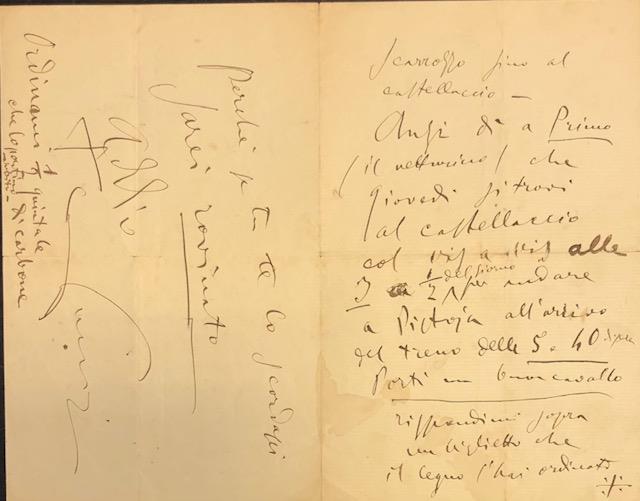 scarrozzo fino al
castellaccio —
Anzi dì a Primo
(il vetturino) che
giovedì si trovi
al castellaccio
col vis a vis alle
3 e 1/2 del giorno per andare
a Pistoja all'arrivo
del treno delle 5 e 40
Porti un buon cavallo
rispondimi sopra
un biglietto che
il legno l'hai ordinato
Perché se tu te lo scordassi
sarei rovinato
addio
Ordinami 1 quintale
che lo portino
di carbone